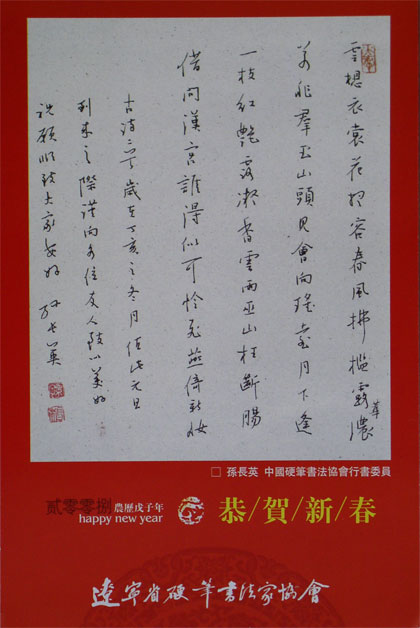 雲想衣裳花想容春風拂檻露華濃
若非羣玉山頭見會向瑤臺月下逢
一枝紅艷露凝香雲雨巫山枉斷腸
借問漢宮誰得似可憐飛燕倚新妝
古詩二首歲在丁亥之冬月值此元旦
到來之際謹向各位友人致以美好
祝願順致大家安好 孙长英
□ 孫長英 中國硬筆書法協會行書委員
貳零零捌 農歷戊子年
happy new year
恭/賀/新/春
遼寧省硬筆書法家協會